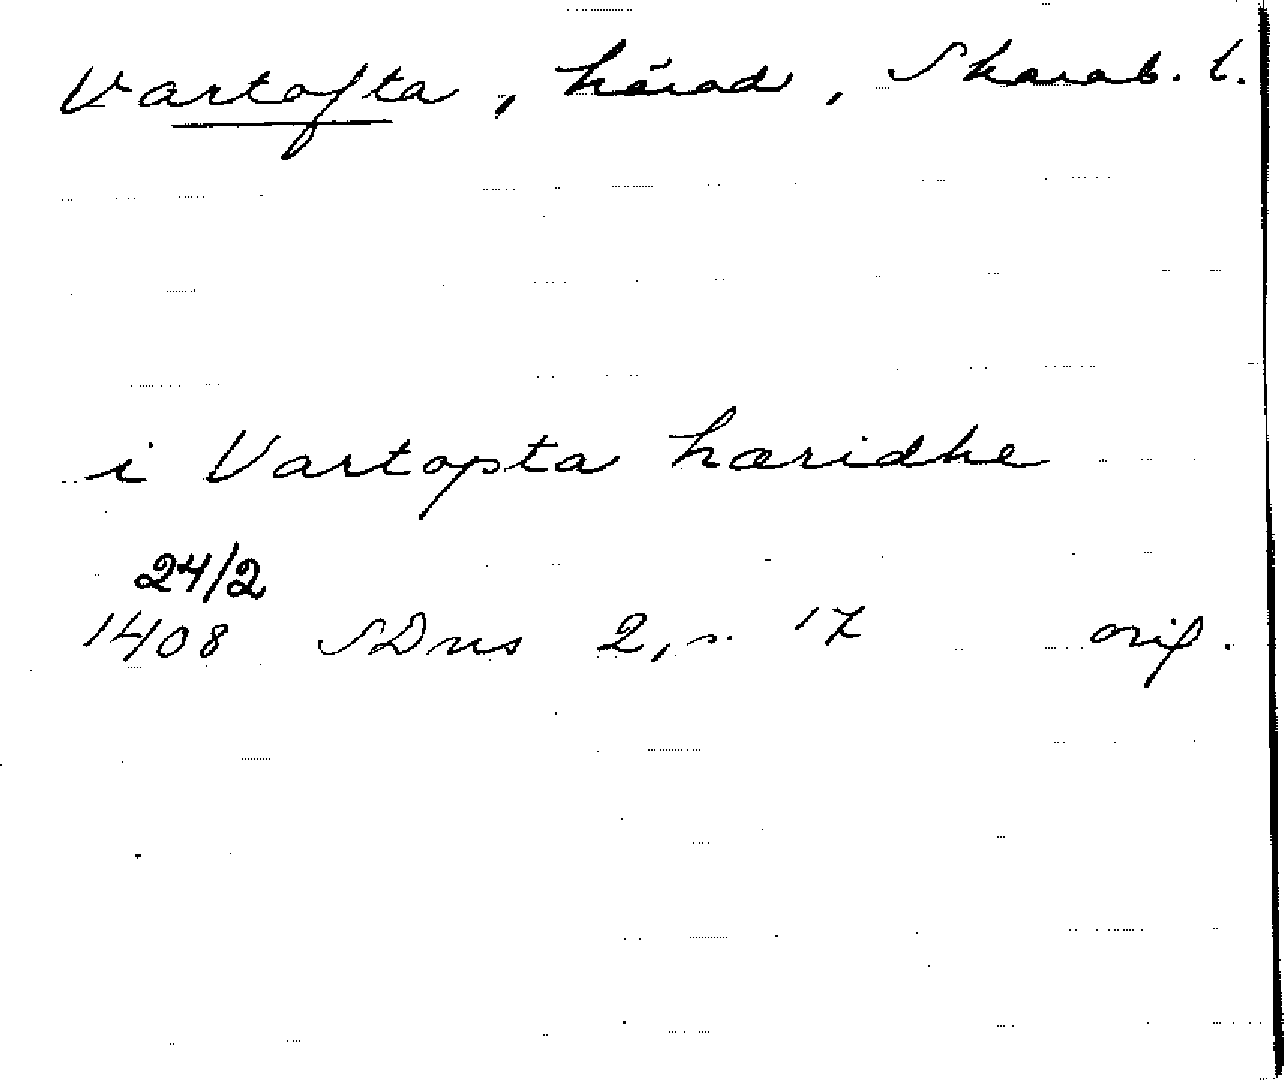 Vartofta, härad, Skarab. l.
i Vartopta hæridhe
24/2
1408 SDns 2, s. 17 orig.